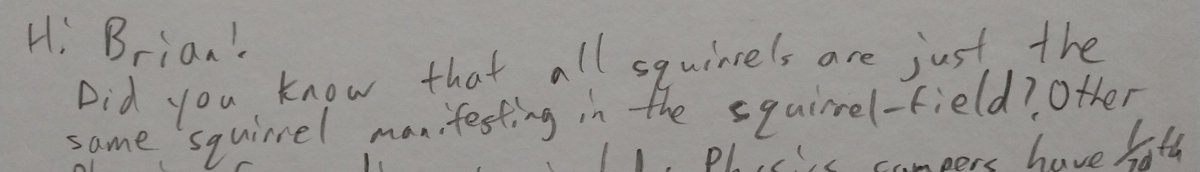 Hi Brian!
Did you know that all squirrels are just the
same squirrel manifesting in the squirrel-field? Other
Physics campers have 1/10th